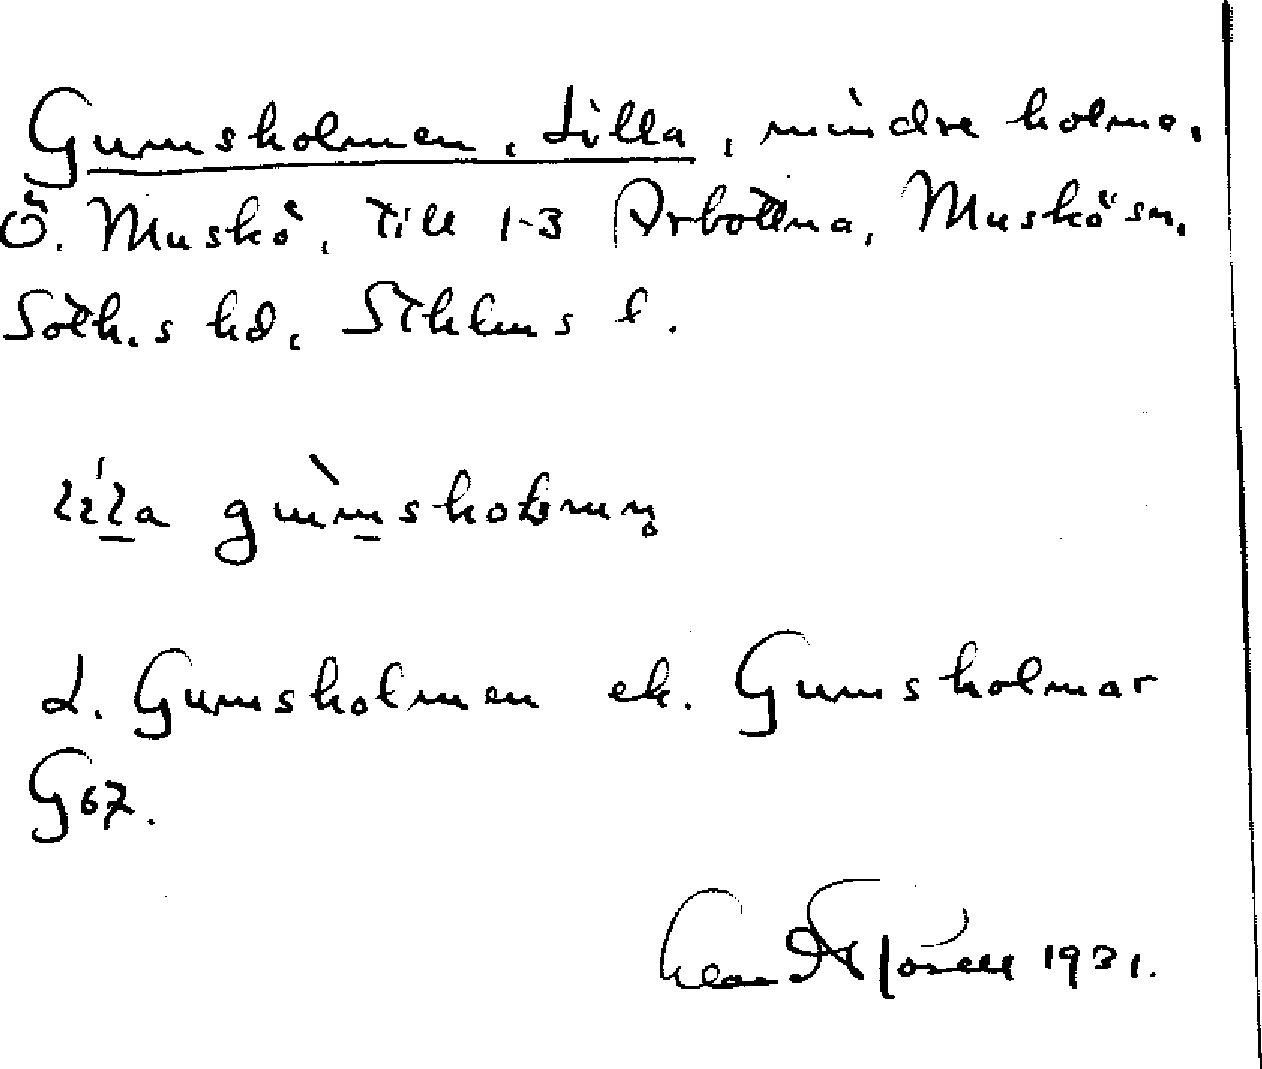 Gumsholmen, Lilla, mindre holme,
Ö. Muskö, till 1-3 Arbottna, Muskö sn,
Soth.s hd, Sthlms l.
lila gumsholmn
L. Gumsholmen ek. Gumsholmar
G 67.
1931.